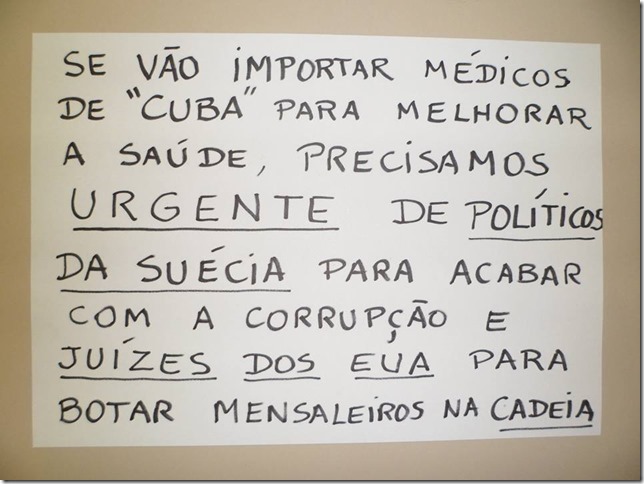 SE VÃO IMPORTAR MÉDICOS
DE "CUBA" PARA MELHORAR
A SAÚDE, PRECISAMOS
URGENTE DE POLÍTICOS
DA SUÉCIA PARA ACABAR
COM A CORRUPÇÃO E
JUÍZES DOS EUA PARA
BOTAR MENSALEIROS NA CADEIA